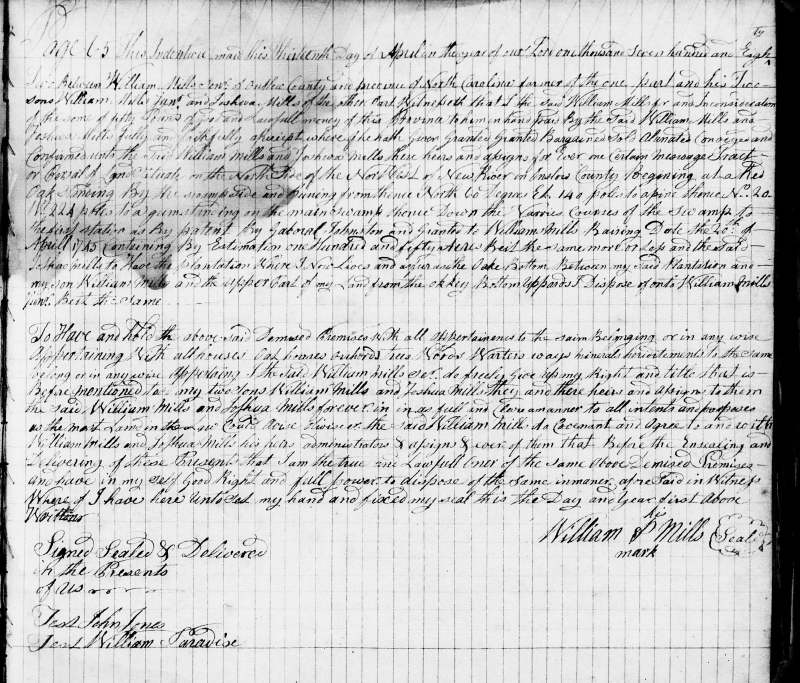 This Indenture made this thirteenth Day of April in the year of our Lord one thousand seven hundred and Eigh
Two Between William Mills Senr. of Onslow County and province of North Carolina farmer of the one part and his Two
sons William Mills Junr. and Joshua Mills of the other Part Witnesseth that I the said William Mill for and Inconsideration
of the some of fifty pounds of good and Lawfull money of this Provina to him in hand paid By the Said William Mills and
Joshua Mills fully Given Granted Granted Bargained Sold Alinated Conveyed and
Confirmed unto the Said William Mills and Joshua Mills there heirs and assigns for Ever one Certain Message Tract
or Land Situate on the North Side of the Nor West of New River in Onslow County Begening at a Red
Oak Standing By the side and runing from thence North 60 Degree Et. 140 poles to a pine thence No. 20
Wt. 224 poles to a gum standing on the main swamp thence Down the Various Courses of the Swamp to
the first station as By patent By Gabriel Johnston and Granted to William Mills Baring Date the 20th. of
April 1745 Containing By Estimation one Hundred and fifty acres Be it the same more or Less and the Said
Joshua Mills to Have the Plantation Where I Now Lives and as the Oake Bottom Between my Said Plantation and
my son William Mills and the upper Part of my Land from the Oakey Bottom uppards I Dispose of onto William Mills
Junr. Be it the Same
To Have and hold the above Said Demised Premises With all appertainences to the saim Belonging or in any wise
Appertaining With all houses Out houses orchards Woods Warters ways minerals to the same
belong or in any wise appertaing I the Said William Mills Ser. do freely Give up my Right and title that is
Before mentioned to my two Sons William Mills and Joshua Mills they and there heirs and assigns to them
the Said William Mills and Joshua Mills forever in in as full and Clere a manner to all intents and purposes
as the most Same in the Law Could Devise the said William Mill do Covenant and Agree to and with
William Mills and Joshua Mills his heirs administrators & assigns & ever of them that Before the Ensealing and
Delivering of these Presents that I am the true and Lawfull Oner of the same above Demised Premises
and have in my self Good Right and full power to dispose of the same in maner afore Said in Witness
Where of I have here unto Set my hand and fixed my seal this the Day and year first above
Written
his
William Mills (Seal)
mark
Signed Sealed & Delivered
in the Presents
of Us
Test John Jones
Test William Paradise